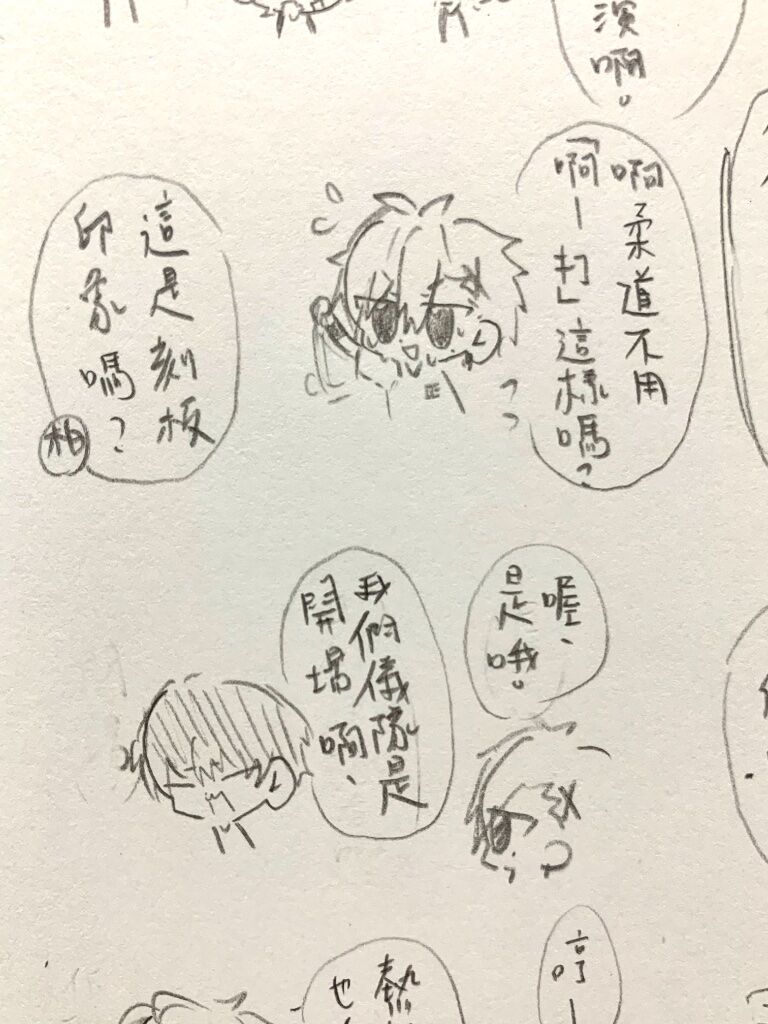 演啊。
啊柔道不用
「啊—打」這樣嗎?
這是刻板
印象嗎?
柏
正
喔、
是哦。
我們儀隊是
開場啊、
哼—
熱
也